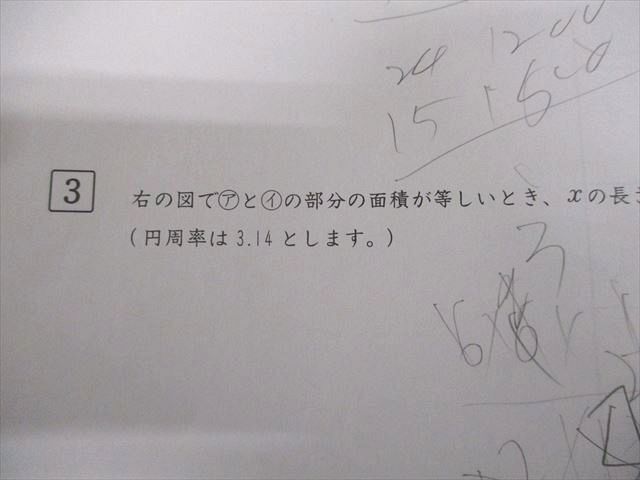 24 1200
15 1500
3 右の図で㋐と㋑の部分の面積が等しいとき、xの長さ
(円周率は3.14とします。)
3